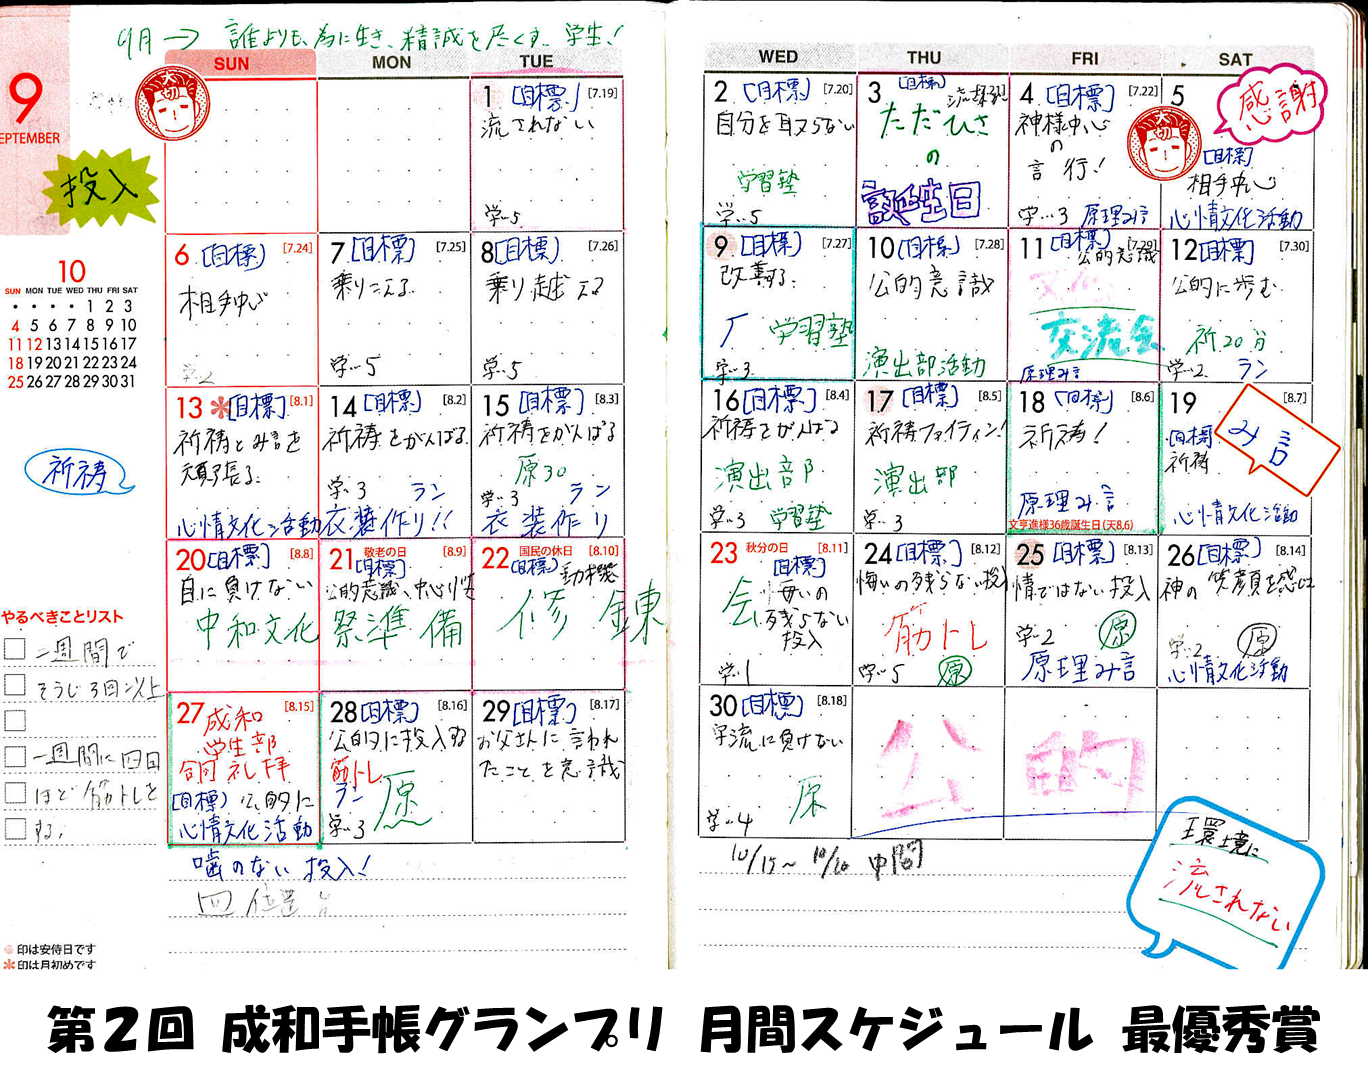 9月 → 誰よりも為に生き、精誠を尽くす。学生!
9
SEPTEMBER
投入
10
SUN MON TUE WED THU FRI SAT
• • • • 1 2 3
4 5 6 7 8 9 10
11 12 13 14 15 16 17
18 19 20 21 22 23 24
25 26 27 28 29 30 31
祈祷
やるべきことリスト
二週間で
そうじ3回以上
一週間に四回
ほど筋トレを
する。
印は安侍日です
印は月初めです
SUN MON TUE
大切
1 [目標] [7.19]
流されない
学…5
6 [目標] [7.24]
相手中心
学…2
7 [目標] [7.25]
乗りこえる
学…5
8 [目標] [7.26]
乗り越える
学…5
13 [目標] [8.1]
祈祷とみ言を
頑張る。
心情文化活動
14 [目標] [8.2]
祈祷をがんばる。
学…3 ラン
衣装作り!!
15 [目標] [8.3]
祈祷をがんばる
原30
学…3 ラン
衣装作り
20 [目標] [8.8]
自に負けない
中和文化
21 敬老の日 [8.9]
[目標]
公的意識、中心
祭準備
22 国民の休日 [8.10]
[目標] 動機
修錬
27 成和 [8.15]
学生部
合同礼拝
[目標] 公的に
心情文化活動
28 [目標] [8.16]
公的に投入する
筋トレ
ラン 原
学…3
29 [目標] [8.17]
お父さんに言われ
たことを意識
噛のない投入!
四位置
WED THU FRI SAT
2 [目標] [7.20]
自分を耳又らない
学習塾
学…5
3 [目標]
ただひさ
の
誕生日
4 [目標] [7.22]
神様中心
の
言行!
学…3 原理み言
5
感謝
大切
[目標]
相手中心
心情文化活動
9 [目標] [7.27]
改善する
学習塾
学…3
10 [目標] [7.28]
公的意識
演出部活動
11 [目標] [7.29]
公的意識
文化
交流会
原理み言
12 [目標] [7.30]
公的に歩む
祈20分
学…2 ラン
16 [目標] [8.4]
祈祷をがんばる
演出部
学…3 学習塾
17 [目標] [8.5]
祈祷ファイティン!
演出部
学…3
18 [目標] [8.6]
祈祷!
原理み言
文亨進様36歳誕生日(天8.6)
19 [8.7]
み言
目標
祈祷
心情文化活動
23 秋分の日 [8.11]
[目標]
会 悔いの
残らない
投入
学…1
24 [目標] [8.12]
悔いの残らない投入
筋トレ
学…5 原
25 [目標] [8.13]
情ではない投入
学…2 原
原理み言
26 [目標] [8.14]
神の笑顔を感じ
学…2 原
心情文化活動
30 [目標] [8.18]
流に負けない
原
学…4
公的
10/15〜10/16 中間
環境に
流されない
第2回 成和手帳グランプリ 月間スケジュール 最優秀賞